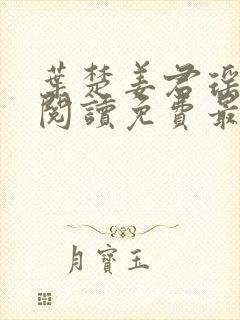 葉楚姜君瑶
閱讀免費最
月寶玉